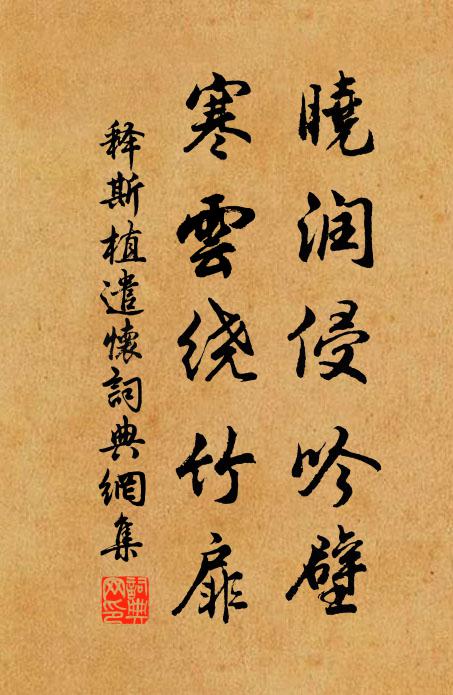 曉润侵吟壁
寒雲绕竹扉
释斯植遣懷詞典網集
詞典网印